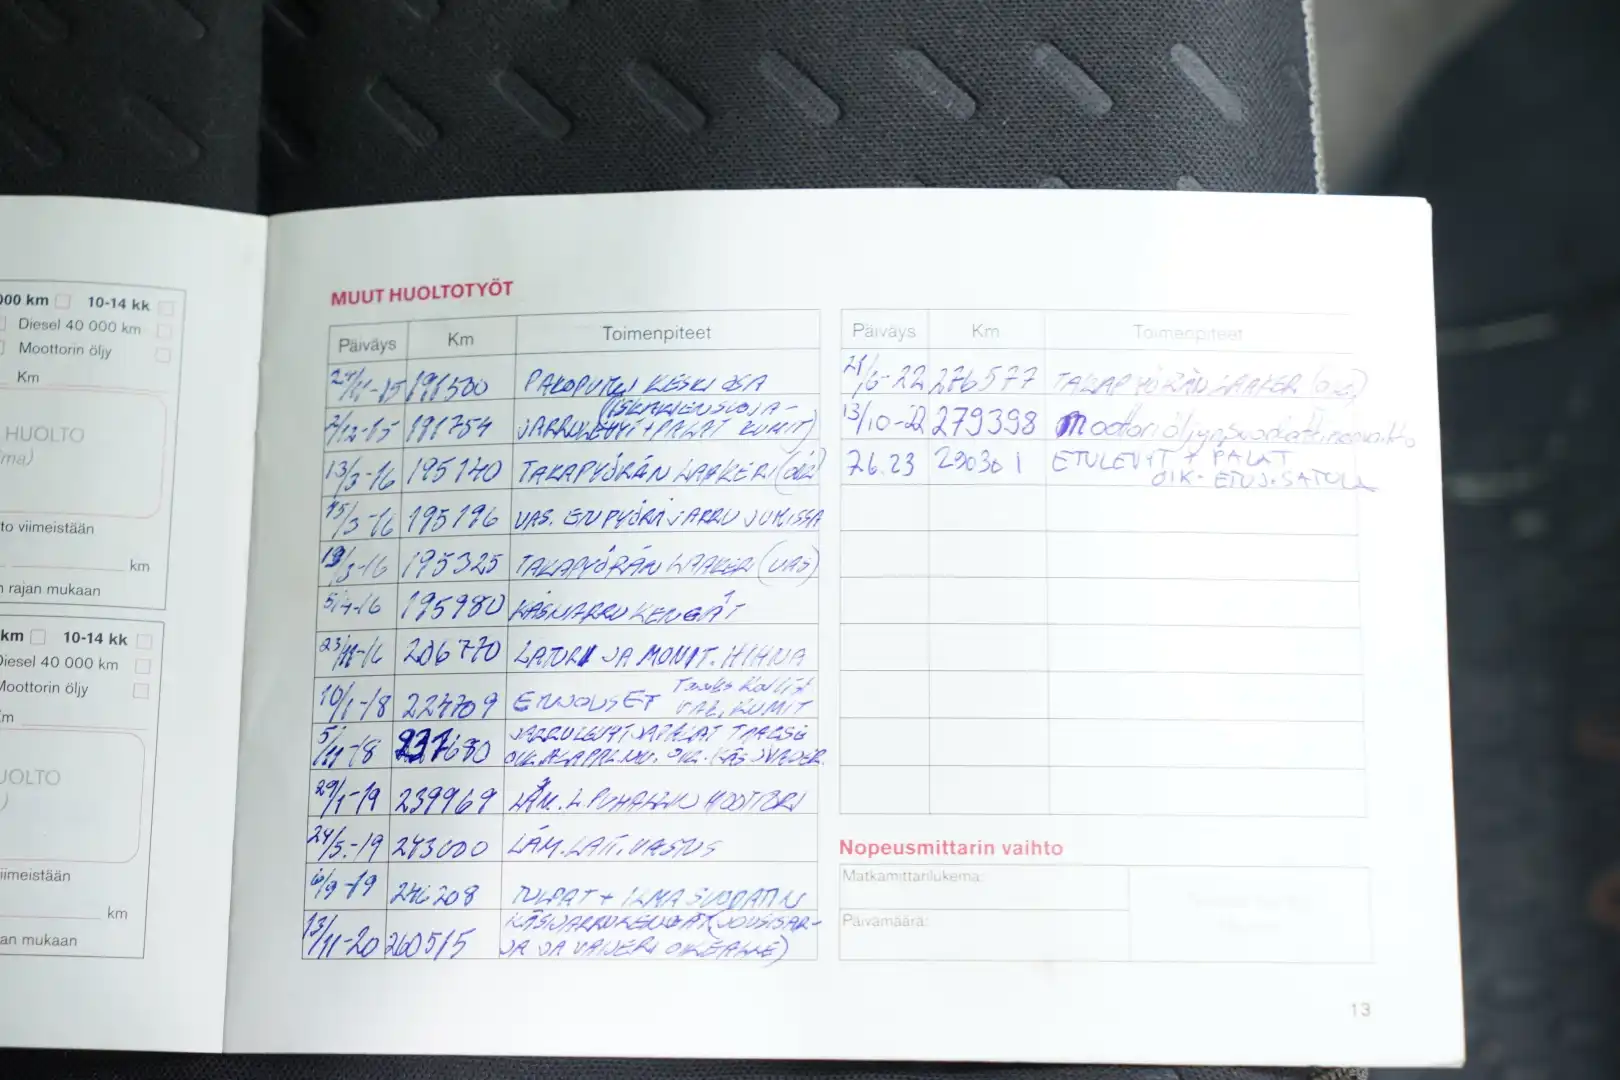 000 km 10-14 kk
Diesel 40 000 km
Moottorin öljy
Km
HUOLTO
to viimeistään
km
n rajan mukaan
km 10-14 kk
Diesel 40 000 km
Moottorin öljy
m
UOLTO
viimeistään
km
an mukaan
MUUT HUOLTOTYÖT
Päiväys Km Toimenpiteet
191500 PAKOPUTKI KESKI OSA
2/12-15 191754 (ISKARIENSUOJA-
JARRULEVYT+PALAT KUMIT)
13/3-16 195140 TAKAPYÖRÄN LAAKERI (OIK)
15/3-16 195196 VAS. ETUPYÖRÄ JARRU JUMISSA
195325 TAKAPYÖRÄN LAAKERI (VAS)
5/4-16 195980 KÄSIJARRU KENGÄT
206770 LATURI JA MONIT. HIHNA
10/1-18 224709 ETUJOUSET
KUMIT
5/11-18 237680 JARRULEVYT JA PALAT TAAKSE
29/1-19 239969 LÄM. L. PUHALLIN MOOTTORI
24/5.-19 243000 LÄM. LAIT. VASTUS
6/9-19 246208 TULPAT + ILMASUODATIN
13/11-20 260515 KÄSIJARRUKENGÄT (JOUSISAR-
JA JA VAIJERI OIKEALLE)
Päiväys Km Toimenpiteet
21/6-22 276577 TAKAPYÖRÄN LAAKER (OIK)
13/10-22 279398 Moottoriöljyn, suodattimenvaihto
7.6.23 290301 ETULEVYT + PALAT
OIK. ETUJ. SATULA
Nopeusmittarin vaihto
Matkamittarilukema:
Päivämäärä:
13